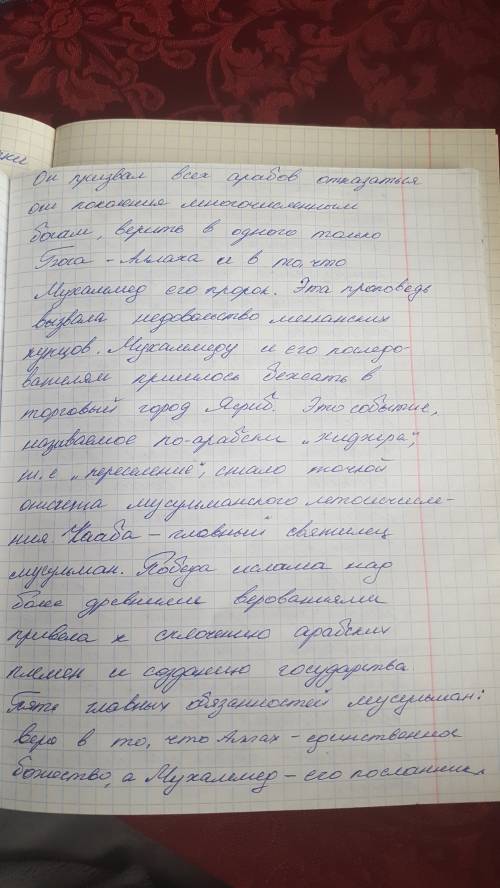 ки
Он призвал всех арабов отказаться
от поклония многочисленным
богам, верить в одного только
Бога - Аллаха и в то, что
Мухаммед его пророк. Эта проповедь
вызвала недовольство мекканских
купцов. Мухаммеду и его последо-
вателям пришлось бежать в
торговый город Ясриб. Это событие,
называемое по-арабски „хиджра",
т.е „переселение", стало точкой
отсчета мусульманского летоисчисле-
ния Кааба - главный святилец
мусульман. Победа ислама над
более древними верованиями
привела к сплочению арабских
племен и созданию государства
Пять главных обязанностей мусульман:
вера в то, что Аллах - единственное
божество, а Мухаммед - его посланник